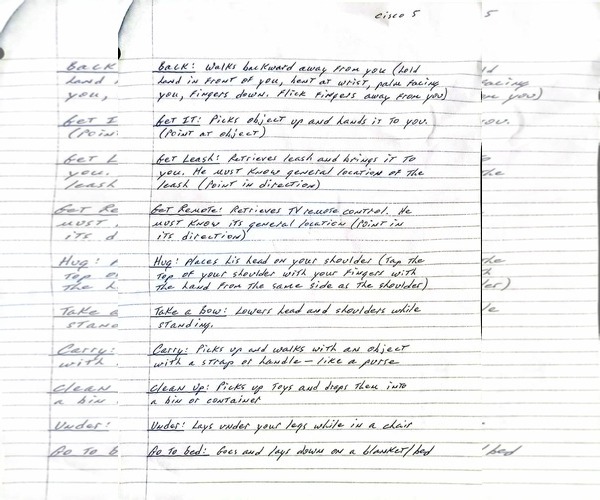 Cisco 5
Back: Walks backward away from you (hold
hand in front of you, bent at wrist, palm facing
you, fingers down. Flick fingers away from you)
Get It: Picks object up and hands it to you.
(Point at object)
Get Leash: Retrieves leash and brings it to
you. He must know general location of the
leash (point in direction)
Get Remote: Retrieves TV remote control. He
must know its general location (point in
its direction)
Hug: Places his head on your shoulders (Tap the
top of your shoulder with your fingers with
the hand from the same side as the shoulder)
Take a Bow: Lowers head and shoulders while
standing.
Carry: Picks up and walks with an object
with a strap or handle - like a purse
Clean Up: Picks up toys and drops them into
a bin or container
Under: Lays under your legs while in a chair
Go To bed: Goes and lays down on a blanket/bed